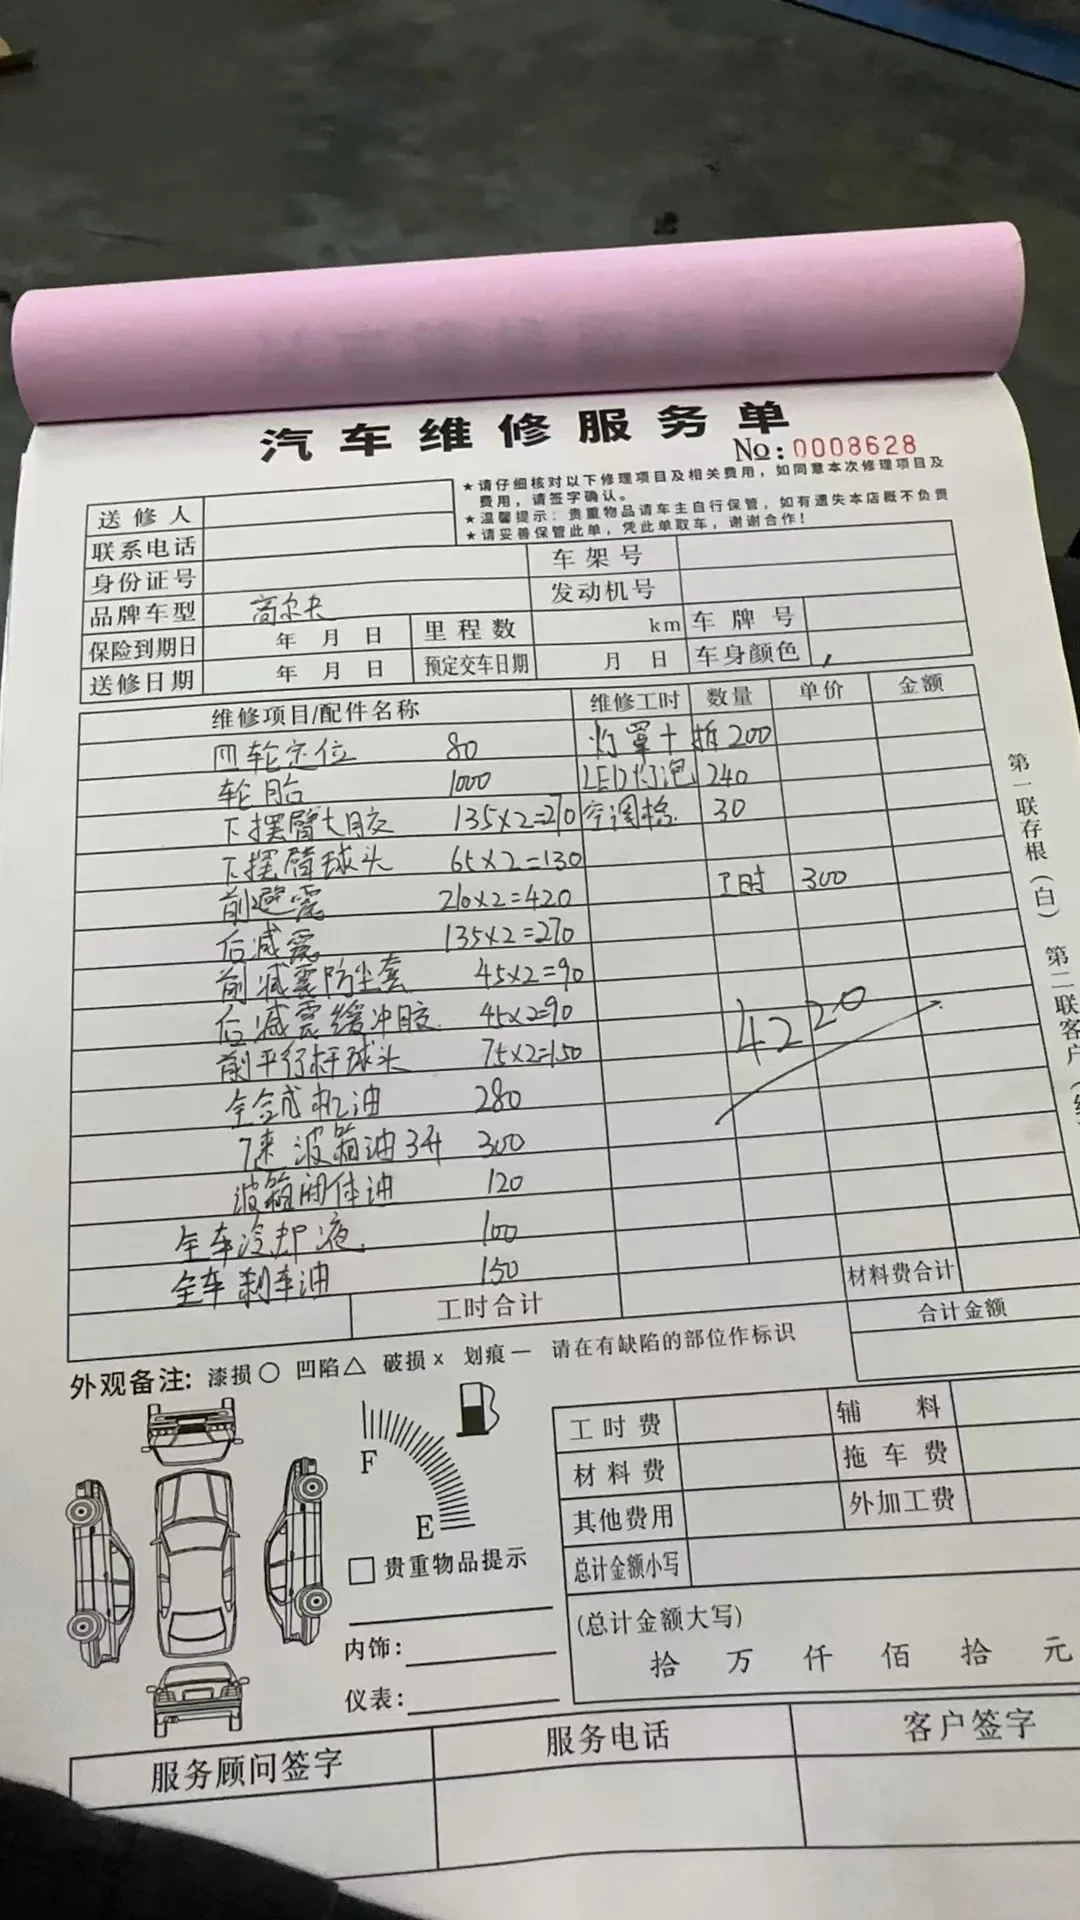 汽车维修服务单
No:0008628
★请仔细核对以下修理项目及相关费用，如同意本次修理项目及
费用，请签字确认。
★温馨提示：贵重物品请车主自行保管，如有遗失本店概不负责
★请妥善保管此单，凭此单取车，谢谢合作！
送修人
联系电话
身份证号 车架号
品牌车型 高尔夫 发动机号
保险到期日 年 月 日 里程数 km 车牌号
送修日期 年 月 日 预定交车日期 月 日 车身颜色
维修项目/配件名称 维修工时 数量 单价 金额
四轮定位 80 灯罩十 200
轮胎 1000 LED灯泡 240
下摆臂大胶 135×2=270 空调格 30
下摆臂球头 65×2=130
前避震 210×2=420 工时 300
后减震 135×2=270
前减震防尘套 45×2=90
后减震缓冲胶 45×2=90 4220
前平行杆球头 75×2=150
全合成机油 280
7速波箱油3升 300
波箱阀体油 120
全车冷却液 100
全车刹车油 150
材料费合计
工时合计
合计金额
外观备注: 漆损○ 凹陷△ 破损× 划痕— 请在有缺陷的部位作标识
F
E
贵重物品提示
内饰:
仪表:
工时费 辅料
材料费 拖车费
其他费用 外加工费
总计金额小写
(总计金额大写)
拾 万 仟 佰 拾 元
服务顾问签字 服务电话 客户签字
第一联存根（白） 第二联客户